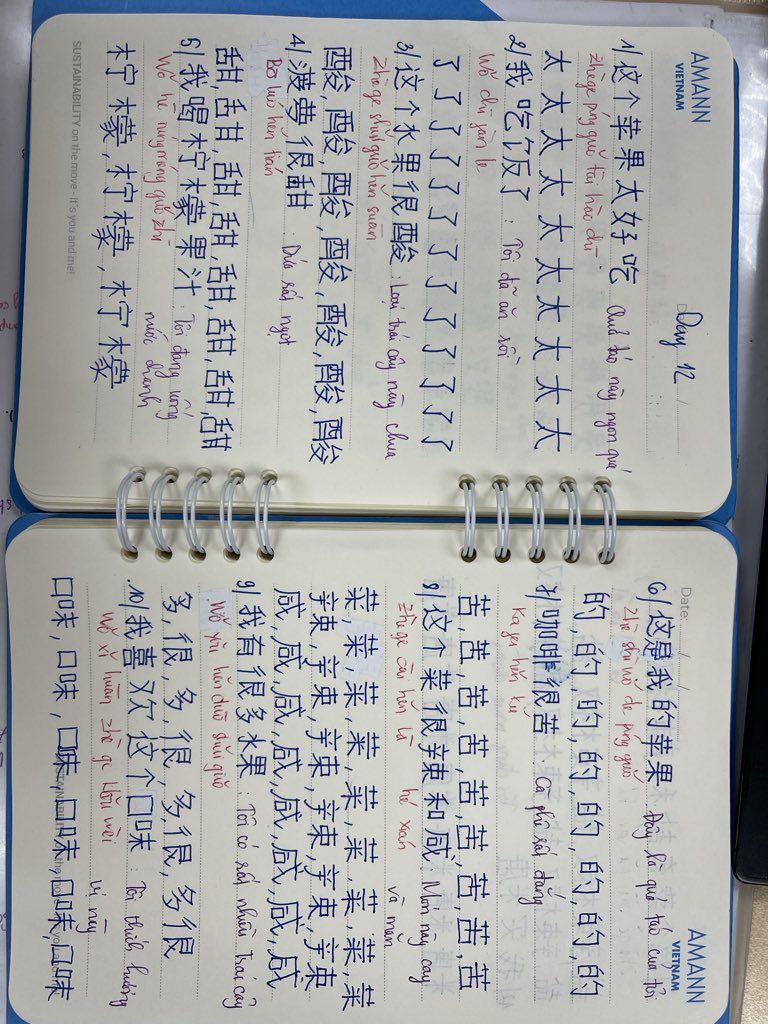 AMANN
VIETNAM
Day 12
1/ 这个苹果太好吃 Quả táo này ngon quá
zhège píng guǒ tài hǎo chī.
太 太 太 太 太 太 太 太 太 太
2/ 我吃饭了 : Tôi đã ăn rồi
Wǒ chī fàn le
了了了了了了了了了了了了
3/ 这个水果很酸 : Loại trái cây này chua
zhège shuǐ guǒ hěn suān
酸, 酸, 酸, 酸, 酸, 酸, 酸
4/ 菠萝很甜 : Dứa rất ngọt
Bō luó hěn tián
甜, 甜, 甜, 甜, 甜, 甜, 甜, 甜
5/ 我喝柠檬果汁 : Tôi đang uống nước chanh
Wǒ hē níng méng guǒ zhī
柠檬, 柠檬, 柠檬, 柠檬
SUSTAINABILITY on the move - it's you and me!
Date:
AMANN
VIETNAM
6/ 这是我的苹果 Đây là quả táo của tôi
Zhè shì wǒ de píng guǒ
的, 的, 的, 的, 的, 的, 的, 的
7/ 咖啡很苦 : Cà phê rất đắng
Ka fei hěn kǔ
苦, 苦, 苦, 苦, 苦, 苦, 苦, 苦, 苦
8/ 这个菜很辣和咸 : Món này cay và mặn
zhège cài hěn là hé xián
菜, 菜, 菜, 菜, 菜, 菜, 菜, 菜, 菜
辣, 辣, 辣, 辣, 辣, 辣
咸, 咸, 咸, 咸, 咸, 咸, 咸, 咸
9/ 我有很多水果 : Tôi có rất nhiều trái cây
Wǒ yǒu hěn duō shuǐ guǒ
多, 很, 多, 很, 多, 很, 多, 很
10/ 我喜欢这个口味 : Tôi thích hương vị này
Wǒ xǐ huān zhè ge kǒu wèi
口味, 口味, 口味, 口味, 口味, 口味